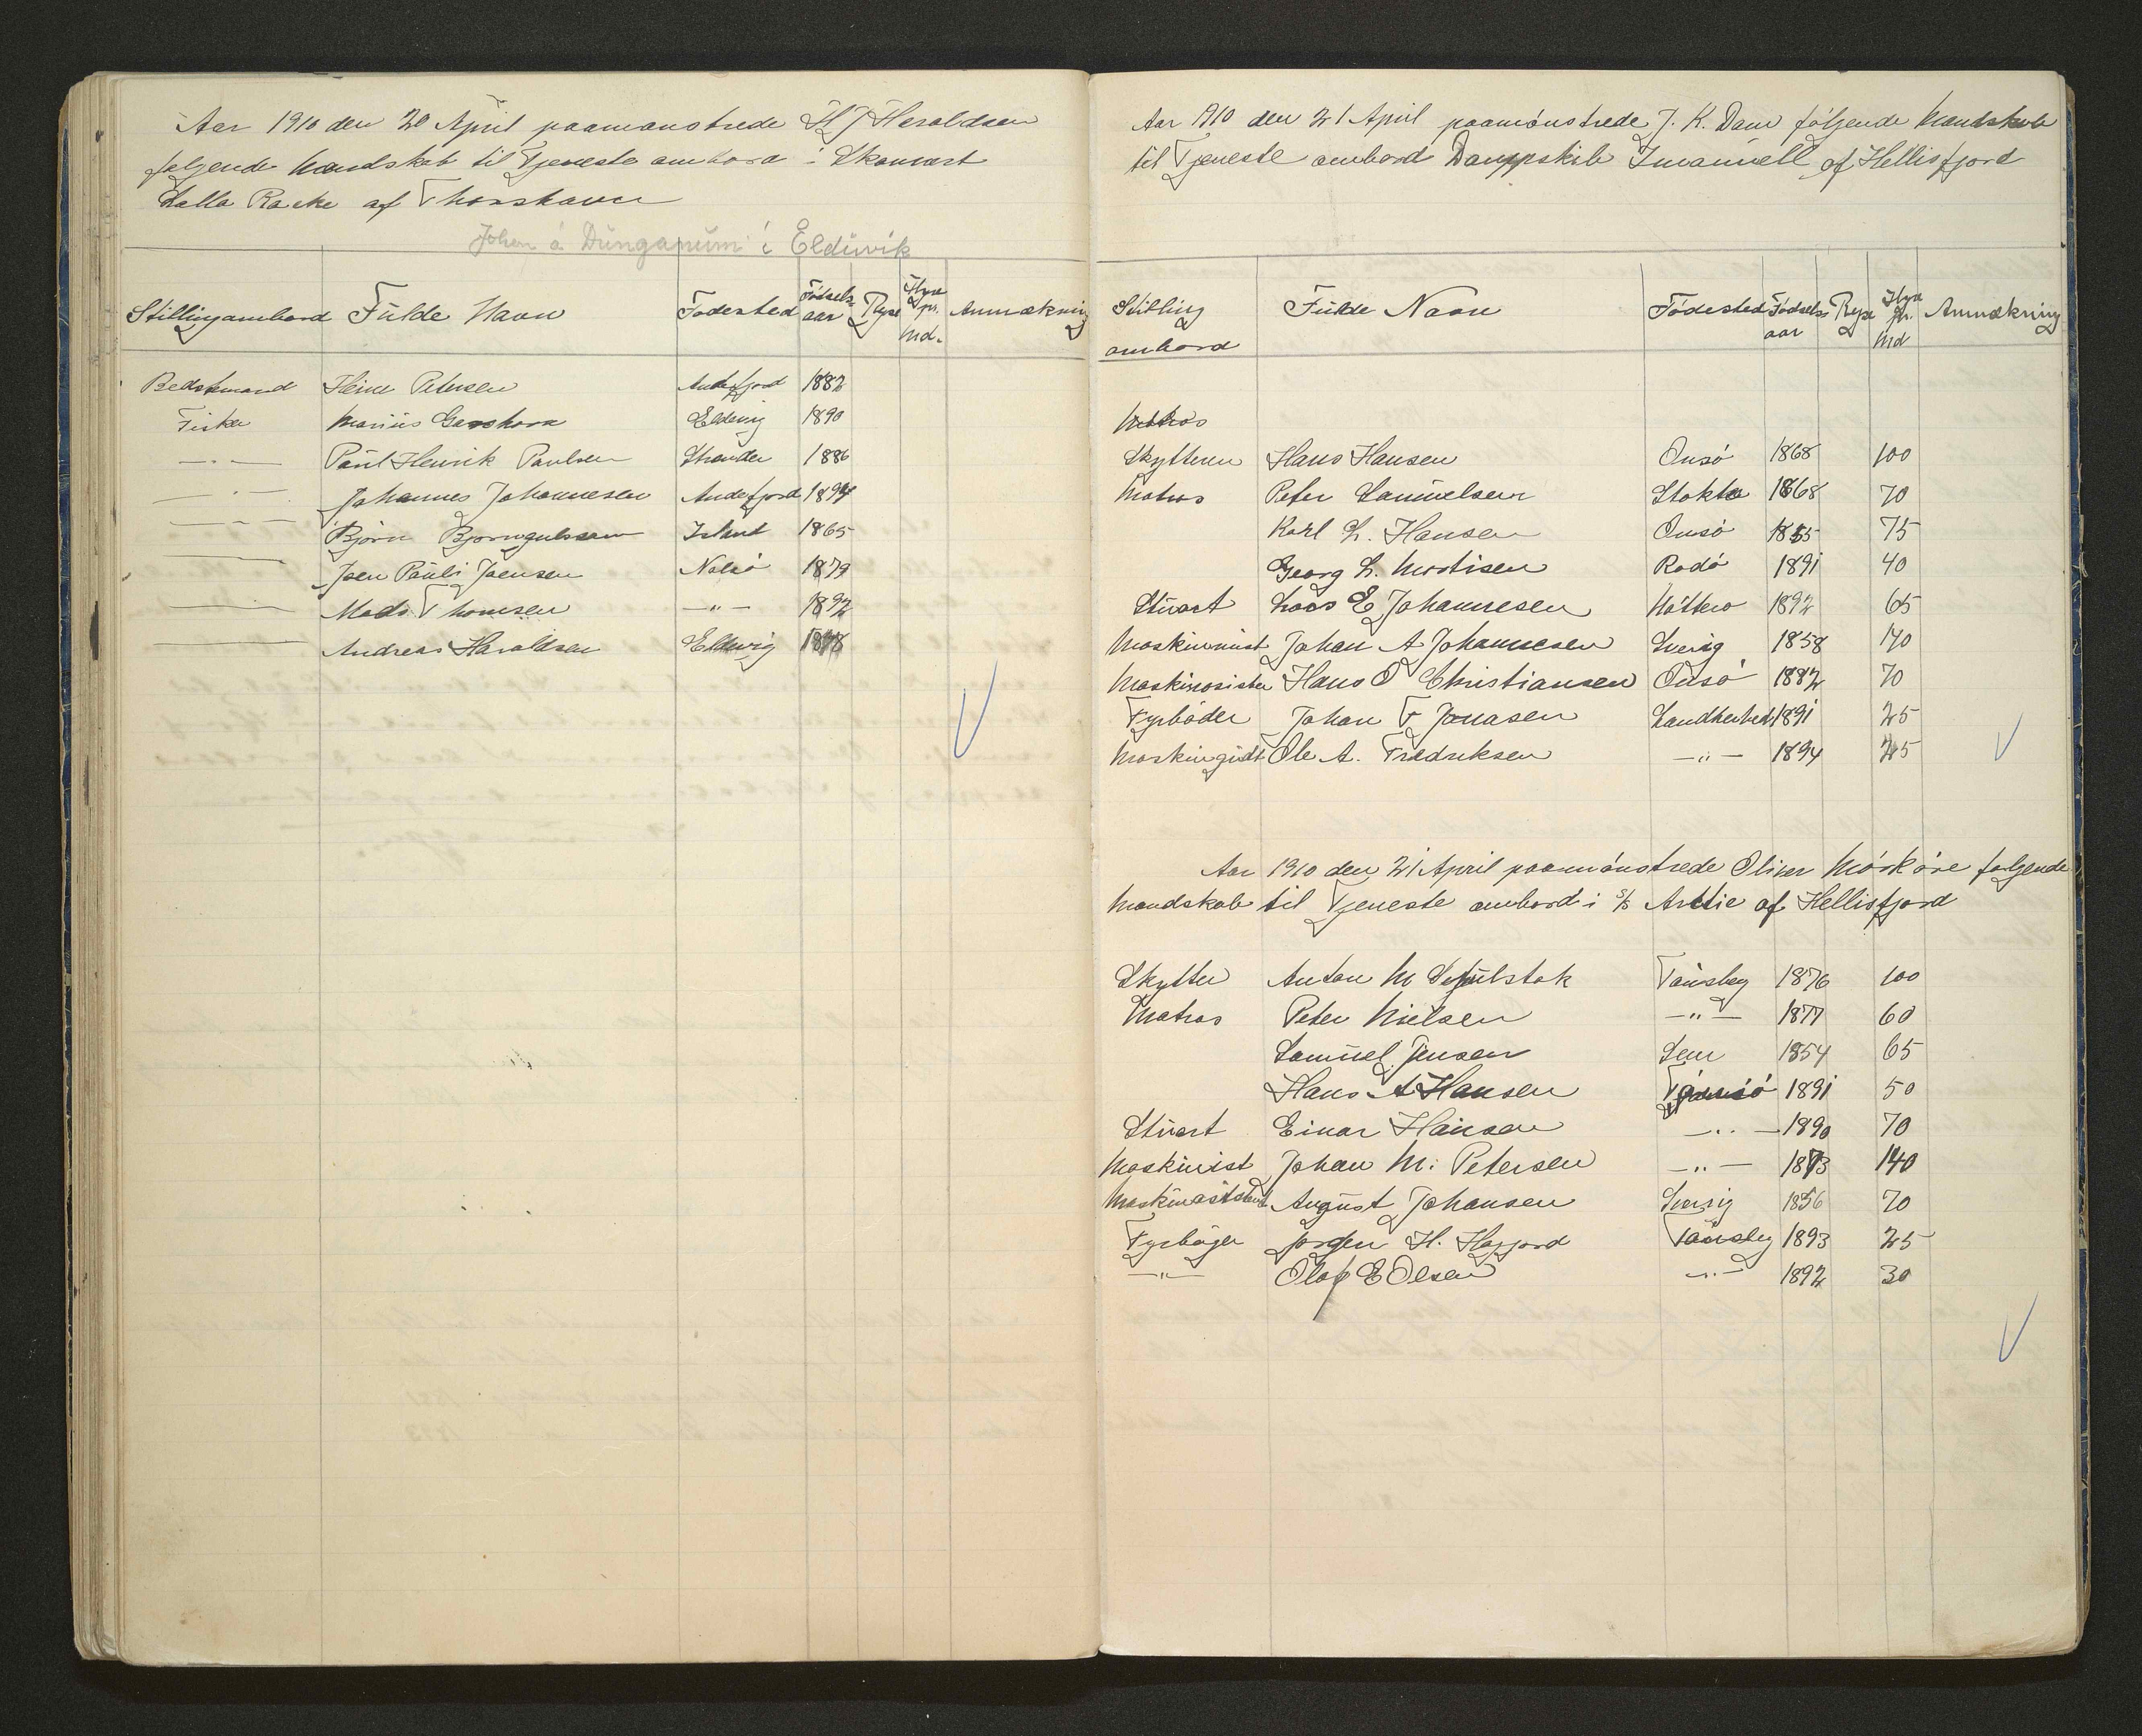 Aar 1910 den 20 April paamonstrede H J Heraldsen
følgende Mandskab til Tjeneste ombord i Skonnert
Lalla Rocke af Thorshavn
Johan á Dunganum í Elduvík
Stilling ombord Fulde Navn Fødested Fødsels aar Rejse Hyre pr. Md. Anmærkning
Bedstemand Heine Petersen Andefjord 1882
Fisker Marius Gaoshorn Eldevig 1890
— . — Paul Henrik Paulsen Strender 1886
— . — Johannes Johannesen Andefjord 1894
— — — Björn Bjorngulssam Island 1865
——— Joen Pauli Joensen Nolsö 1879
——— Mads Thomsen — " — 1892
——— Andreas Haraldsen Eldevig 1878
Aar 1910 den 21 April paamönstrede J. K. Dam følgende Mandskab
til Tjeneste ombord Dampskib Imanuell af Hellisfjord
Stilling ombord Fulde Navn Fødested Fødsels aar Rejse Hyre pr. Md Anmærkning
Matros
Skytteren Hans Hansen Onsö 1868 100
Matros Peter Samuelsen Stokke 1868 70
Karl L. Hansen Onsö 1855 75
Georg L. Mortisen Rodö 1891 40
Stuart Laos E Johannesen Nøttero 1892 65
Maskinmist Johan A Johannesen Sverig 1858 140
Maskinosister Hans O Christiansen Onsö 1882 70
Fyrböder Johan F Jonasen Sandherred 1891 25
Maskingidt Ole A. Fredriksen — " — 1894 25
Aar 1910 den 21 April paamönstrede Oliver Mörköre følgende
Mandskab til Tjeneste ombord i S/S Arctic af Hellisfjord
Skytter Anton M Tønsberg 1876 100
Matros Peter Nielsen — " — 1877 60
Samuel Jensen Sem 1854 65
Hans A Hansen 1891 50
Stuart Einar Hansen — " — 1890 70
Maskinist Johan M. Petersen — " — 1873 140
Maskinasistent August Johansen Sverig 1856 70
Fyrböjer Jørgen H. Tønsberg 1893 25
— " — Olaf E Olsen — " — 1892 30